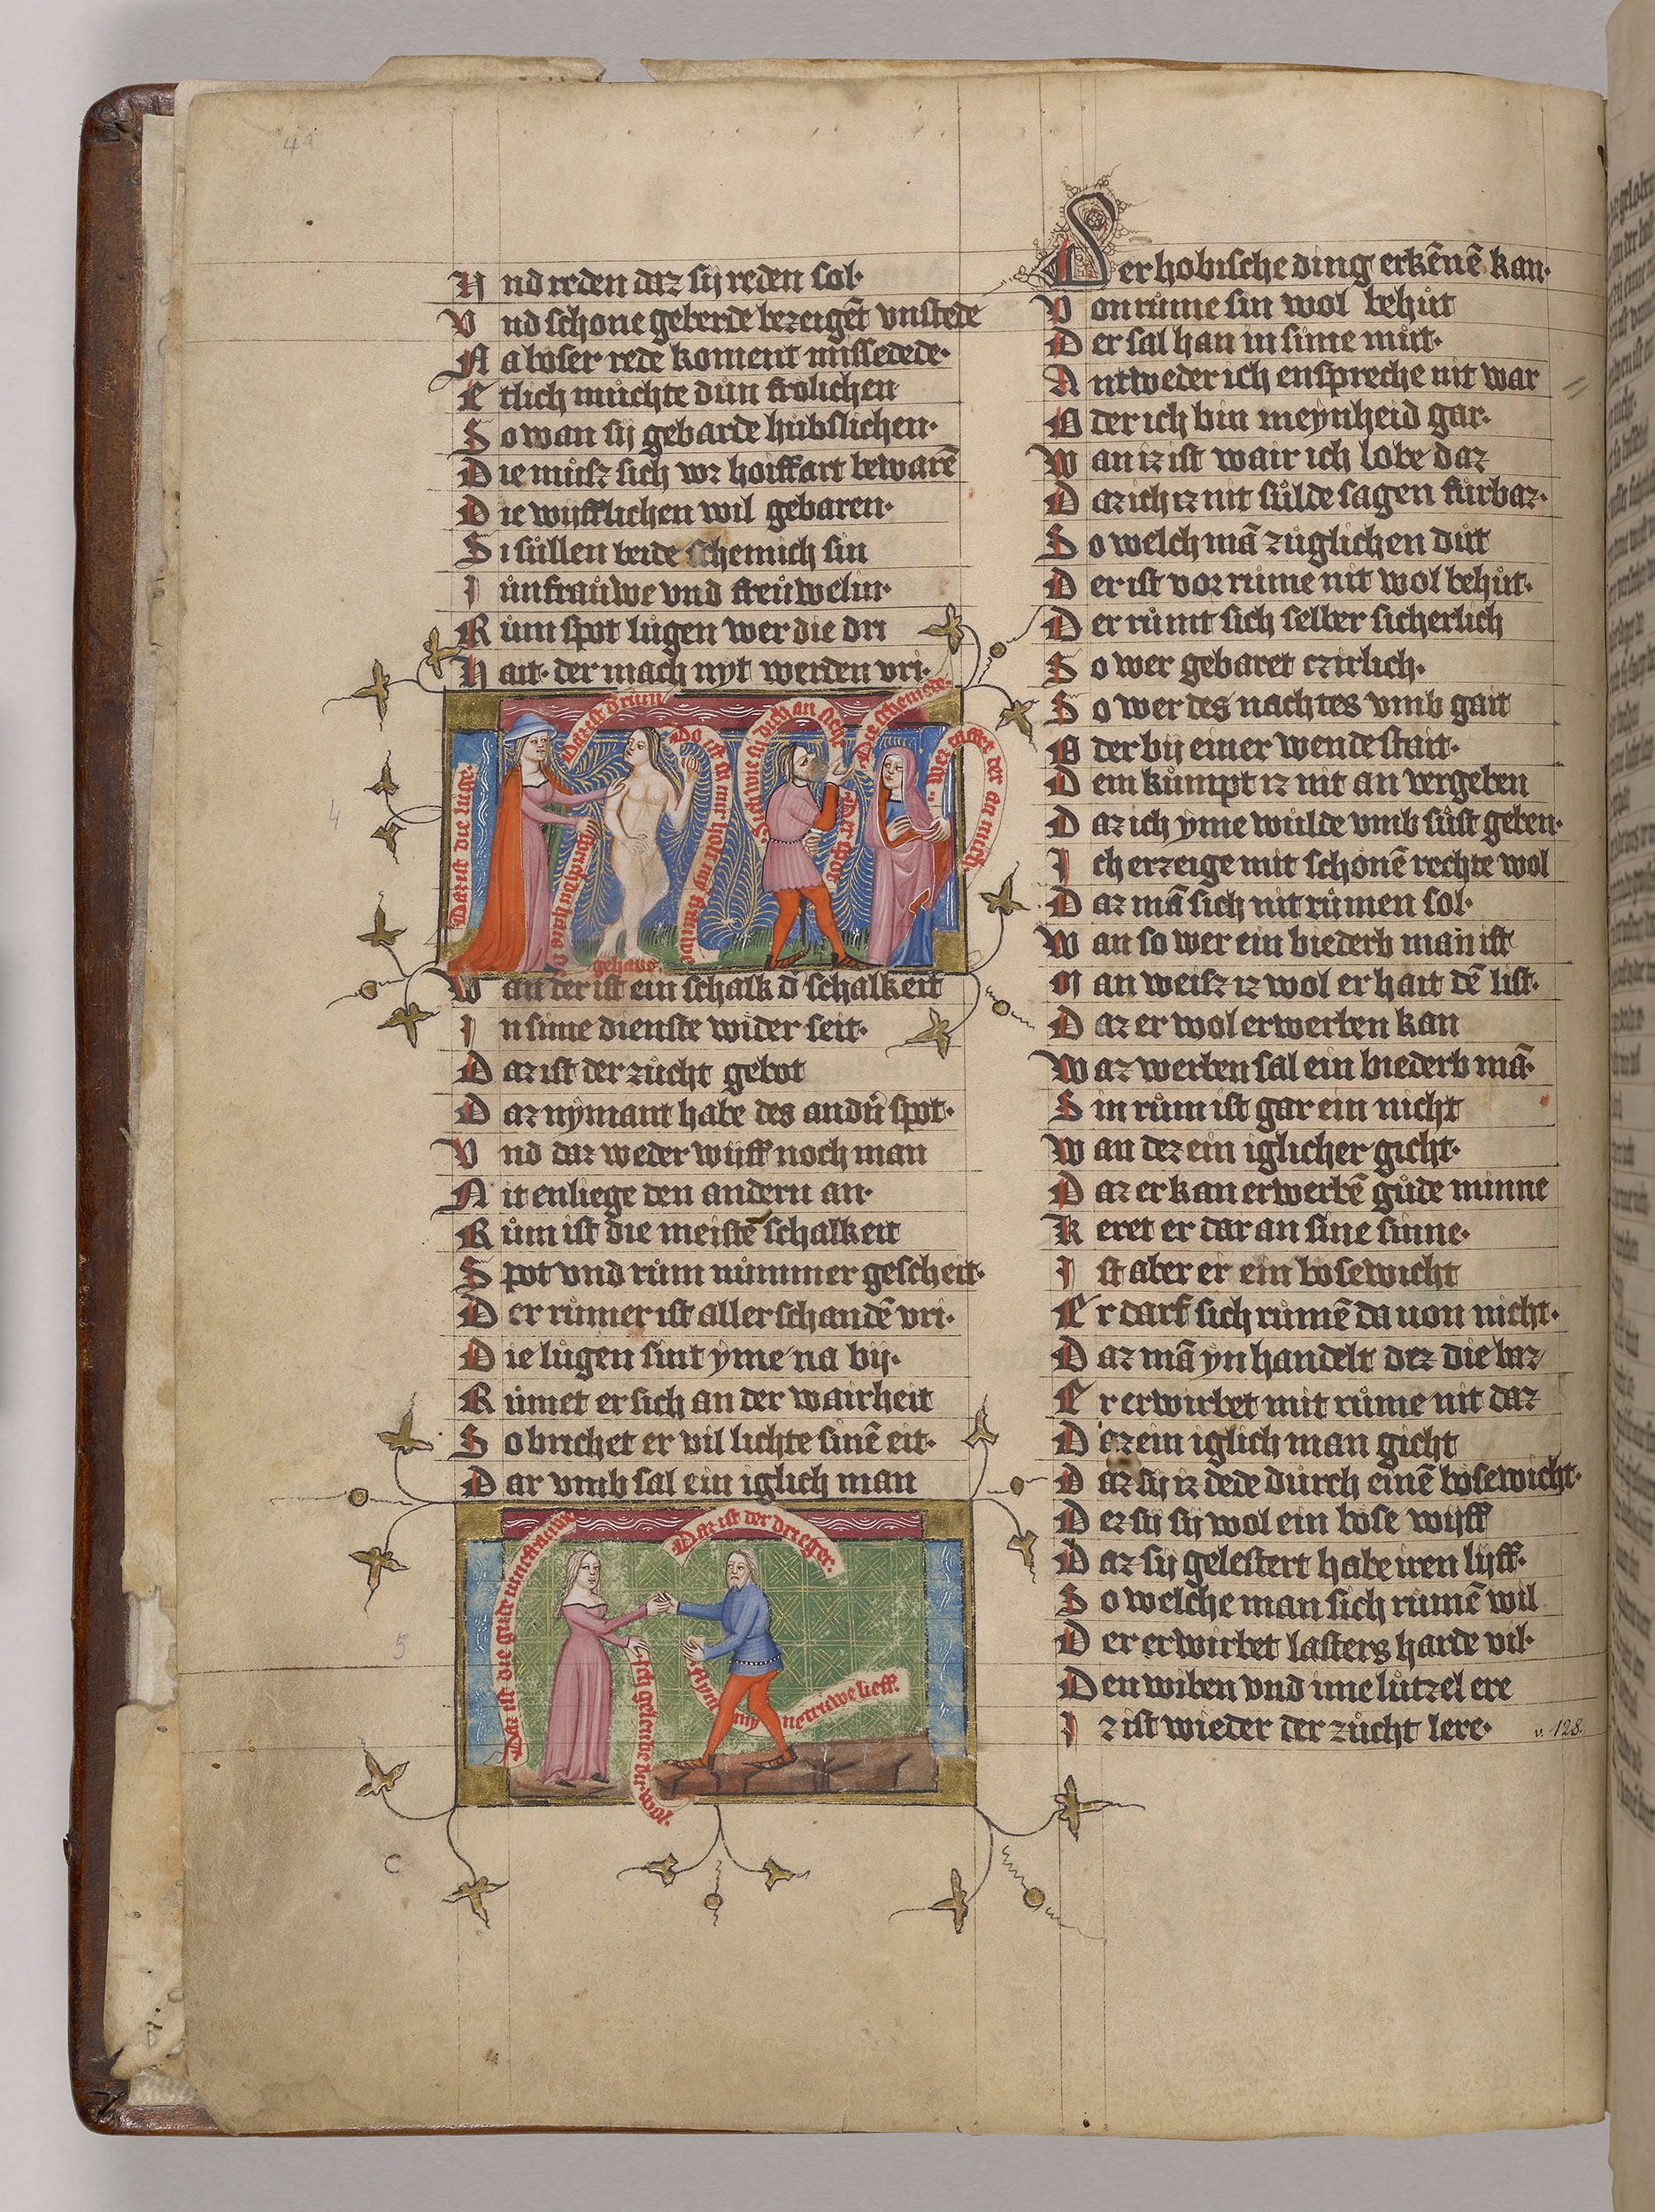 V nd reden daz sij reden sol·
V nd schone geberde bezeigēt vnstede
N a boser rede koment missedede·
E tlich muͦchte duͦn frolichen
S o wan sij gebarde hubslichen·
D ie muͦsz sich vor hoiffart bewarē
D ie wijfflichen wil gebaren·
S i suͤllen beide schemich sin
J uͦnfrauͦwe vnd freuͦwelin·
R uͦm spot luͤgen wer die dri
H ait· der mach nyt werden vri·
Daz ist die luge·
Daz ist d' rum
Do ist
Sich wie sij dich an siche
Die schemede·
Der spot
Wer caffet der an mich
gehabt·
W an der ist ein schalk d' schalkeit
J n sime dienste wider seit·
D az ist der zuͤcht gebot
D az nymant habe des andn̄ spot·
V nd daz weder wijff noch man
N it enliege den andern an·
R uͦm ist die meiste schalkeit
S pot vnd ruͦm nuͦmmer gescheit·
D er ruͤmer ist aller schandē vri·
D ie luͤgen sint yme na bij·
R uͤmet er sich an der wairheit
S o brichet er vil lichte sinē eit·
D ar vmb sal ein iglich man
Daz ist die gude iuncfrauwe
Daz ist der drieger·
Ich geleube der wol·
netruwe lieff·
D er hobische ding erkēnē kan·
V on ruͦme sin wol behuͦt
D er sal han in sime muͦt·
A ntweder ich enspreche nit war
O der ich bin meynheid gar·
W an iz ist wair ich lobe daz
D az ich iz nit suͤlde sagen fuͤrbaz·
S o welch mā zuͤglichen duͦt
D er ist vor rume nit wol behuͦt·
D er ruͦmt sich selber sicherlich
S o wer gebaret czirlich·
S o wer des nachtes vmb gait
O der bij einer wende stait·
D em kuͦmpt iz nit an vergeben
D az ich yme wuͤlde vmb suͤst geben·
J ch erzeige mit schonē rechte wol
D az mā sich nit ruͦmen sol·
W an so wer ein biederb man ist
M an weisz iz wol er hait dē list·
D az er wol erwerben kan
W az werben sal ein biederb mā·
S in ruͦm ist gar ein nicht
W an dez ein iglicher gicht·
D az er kan erwerbē guͦde minne
K eret er dar an sine sinne·
J st aber er ein bosewicht
E r darf sich ruͦmē da uon nicht·
D az mā yn handelt dez die baz
E r erwirbet mit ruͦme nit daz
D az ein iglich man gicht
D az sij iz dede duͦrch einē bosewicht·
D ez sij sij wol ein bose wijff
D az sij gelestert habe iren lijff·
S o welche man sich rumē wil
D er erwirbet lasters harde vil·
D en wiben vnd ime luͤtzel ere
J z ist wieder der zuͤcht lere·
v. 128.
4a
4
5
C